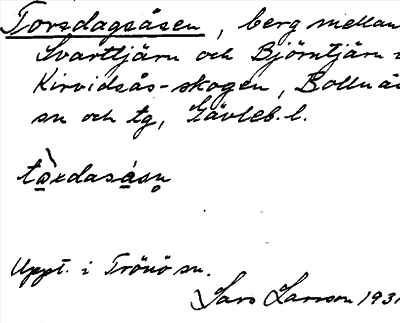 Torsdagsåsen, berg mellan
Svarttjärn och Björntjärn
Kirvidsås-skogen, Bollnä
sn och tg, Gävleb. l.
tàrdasåsn
Uppt. i Trönö sn.
Lars Larsson 1931